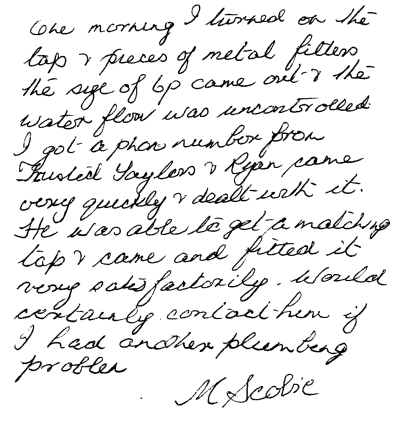 One morning I turned on the
tap & pieces of metal filters
the size of 6p came out & the
water flow was uncontrolled.
I got a phon number from
Trusted Taylors & Ryan came
very quickly & dealt with it.
He was able to get a matching
tap & came and fitted it
very satisfactorily. Would
certainly contact him if
I had another plumbing
problem
M Scobie